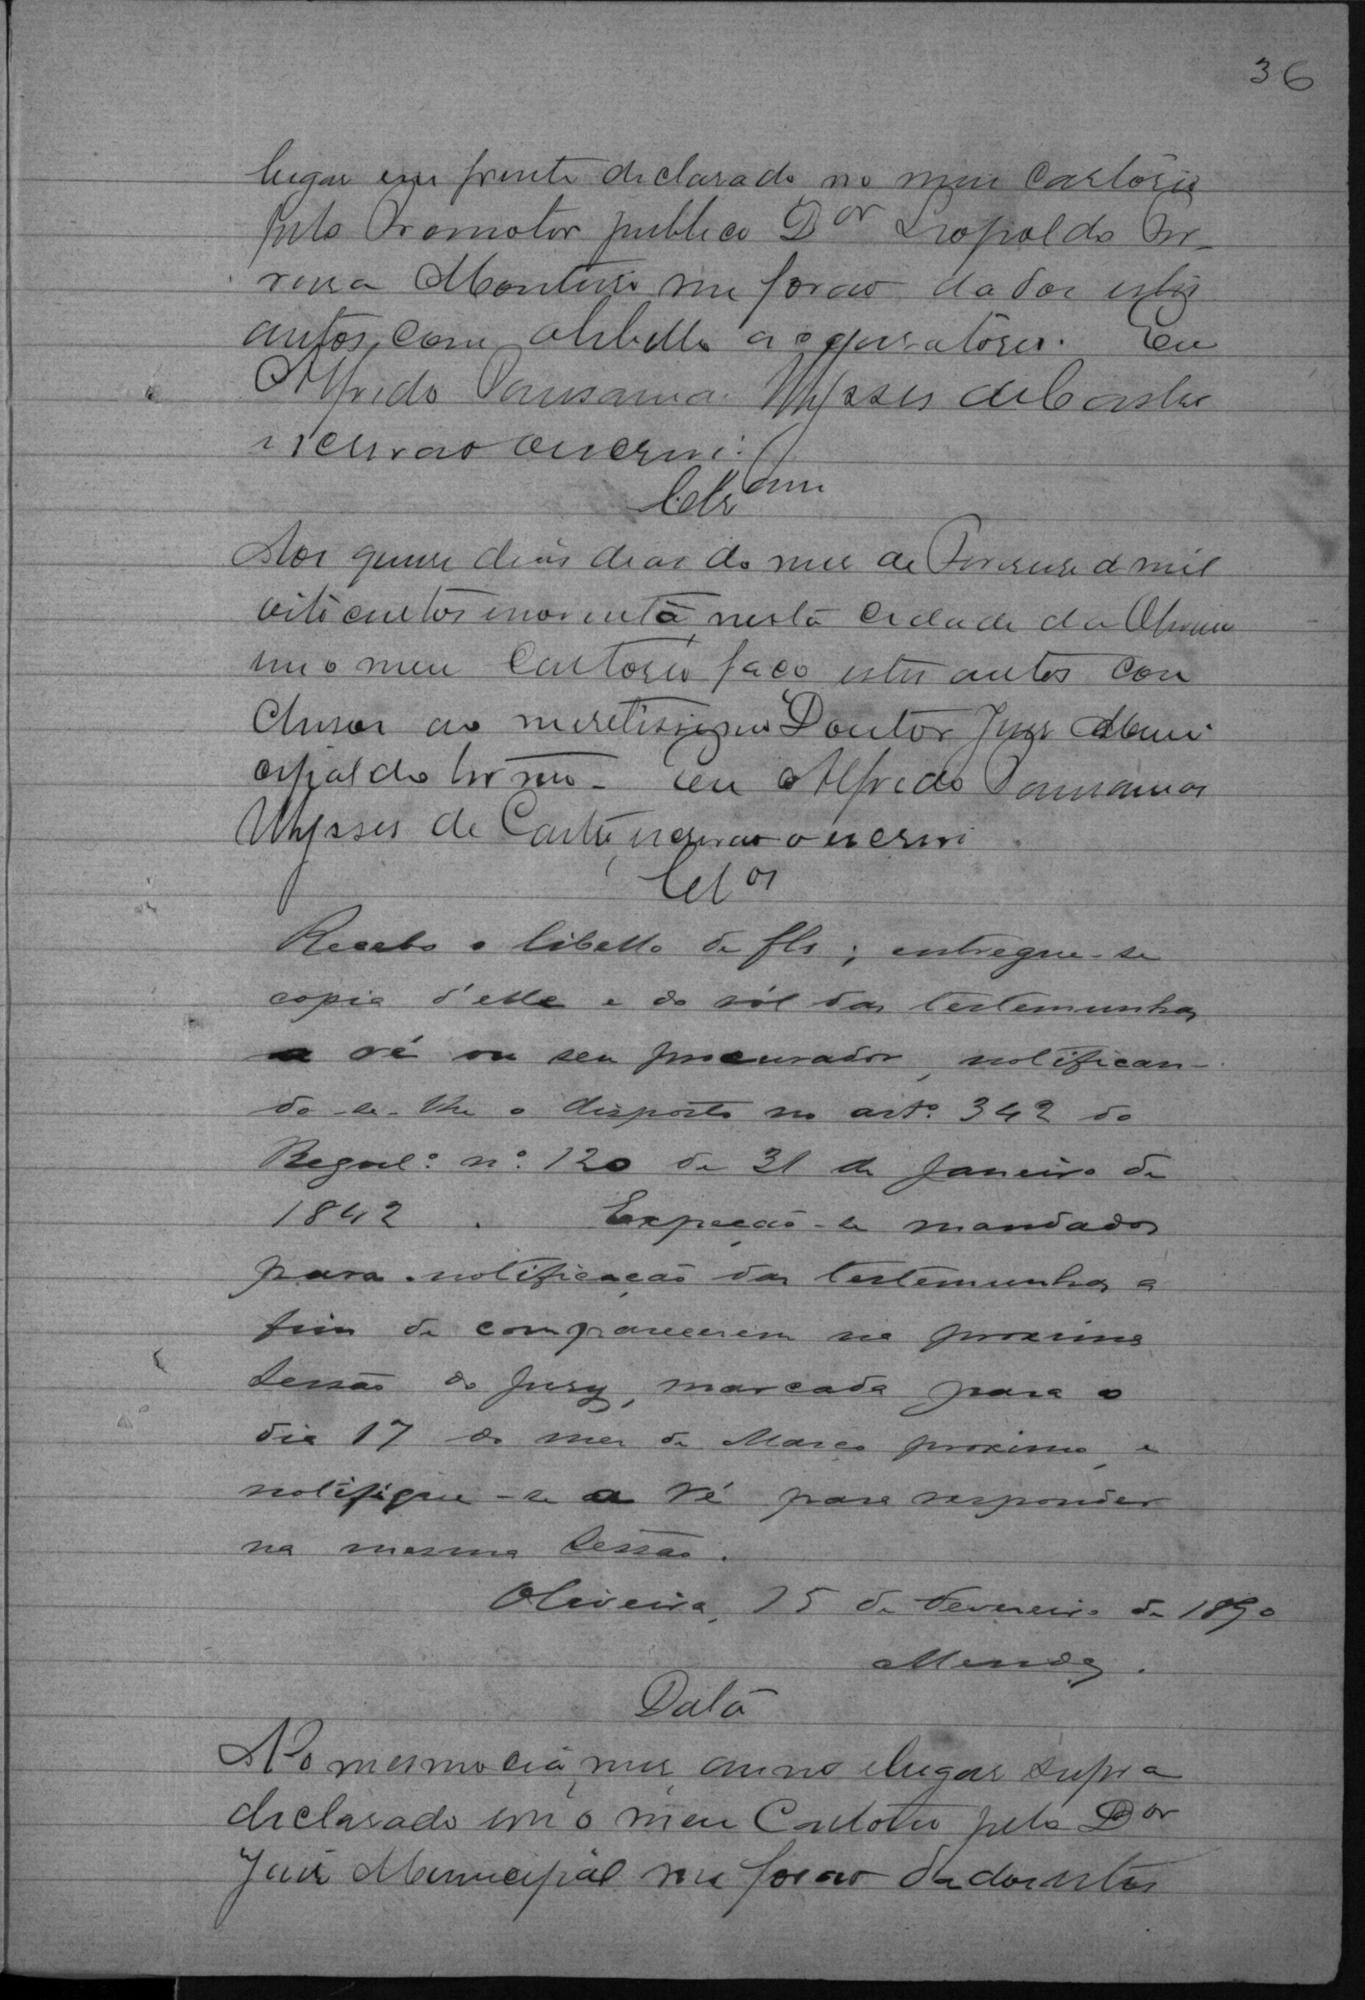 36
lugar em frente declarado no meu cartório
pelo Promotor publico Dor Leopoldo Fer-
reira Monteiro me forão dados estes
autos com o libello accusatório. Eu
Alfredo Pausanias Ulysses de Castro
escrivão o escrevi.
Aos quinse dias dias do mes de Fevereiro de mil
oito centos e noventa, nesta cidade da Oliveira
em o meu Cartorio faço estes autos con
clusos ao meretissimo Doutor Juis Muni
cipal do termo. Eu Alfredo Pausanias
Ulysses de Castro, escrivão o escrevi.
Clos
Recebo o libello de fls; entregue-se
copia d'elle e do ról das testemunhas
a ré ou seu procurador, notifican-
do-se-lhe o disposto no arto. 342 do
Regul.o n.o 120 de 31 de Janeiro de
1842. Expeção-se mandados
para notificação das testemunhas a
fim de comparecerem na proxima
sessão do Jury, marcada para o
dia 17 do mez de Março proximo, e
notifique-se a ré para responder
na mesma sessão.
Oliveira, 15 de Fevereiro de 1890
Mendes.
Data
No mesmo dia, mes, anno e lugar supra
declarado em o meu Cartorio pelo Dor
Juis Municipal me forão dados estes